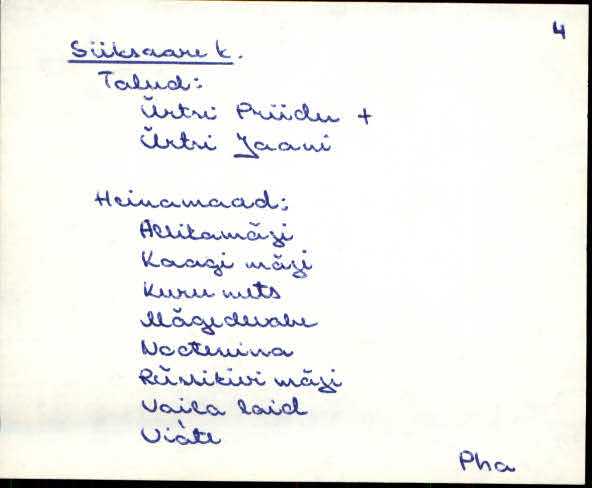 4
Siiksaare k.
Talud:
Ürtsi Priidu +
Ürtsi Jaani
Heinamaad:
Allikamägi
Kaagi mägi
Kuru mets
Mägedevahe
Nootenina
mägi
Vaila laid
Viáte
Pha